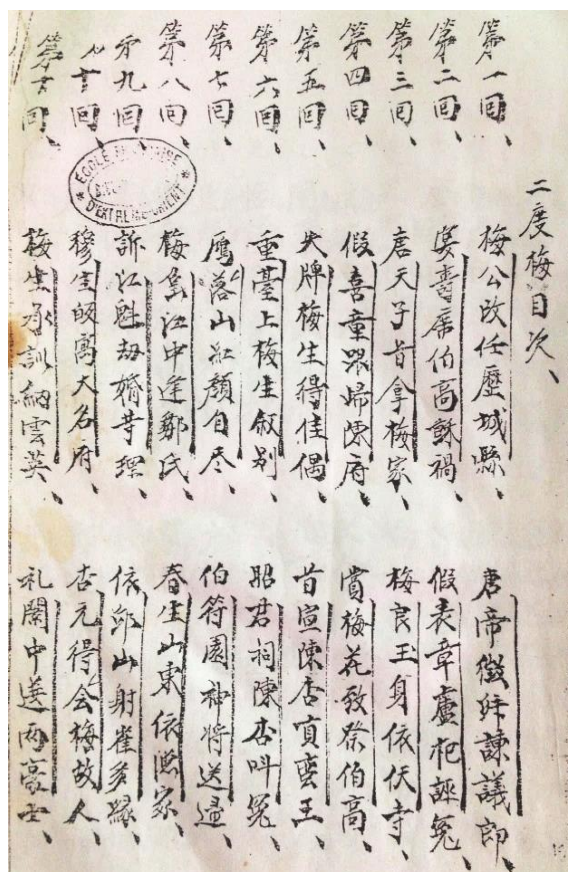 二度梅目次、
第一回、梅公改任歷城縣、唐帝徵陞諫議郎、
第二回、宴壽席伯高禍、假表章盧杞誣冤、
第三回、唐天子旨拿梅家、梅良玉身依伏寺、
第四回、假喜童跟歸陳府、賞梅花致祭伯高、
第五回、失牌梅生得佳偶、旨宣陳杏貢蠻王、
第六回、重臺上梅生叙别、昭君祠陳杏叫冤、
第七回、鴈落山紅顏自尽、伯符園神將送還、
第八回、梅江中逢鄒氏、春生山東依家、
第九回、訴江魁劫婚理、依邱山射雀多緣、
回、穆生皈寓大名府、杏元得会梅故人、
回、梅生承訓納雲英、礼闈中選两豪士、
ECOLE FRANÇAISE
D'EXTREME-ORIENT